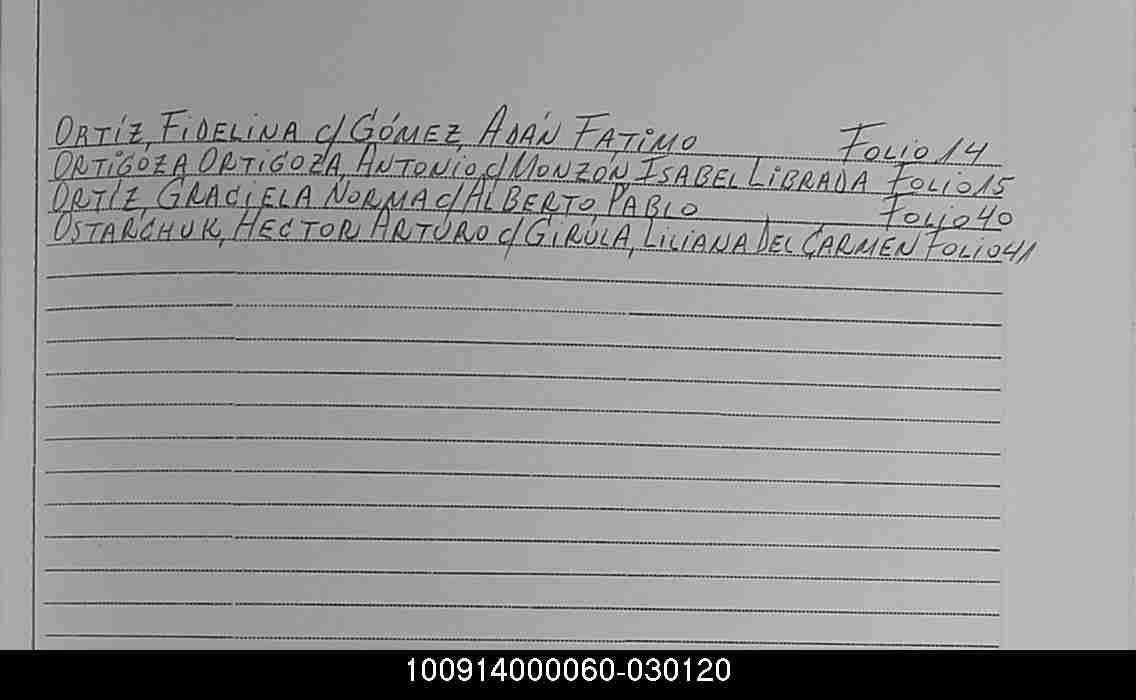 ORTÍZ, FIDELINA c/ GÓMEZ, ADÁN FATIMO FOLIO 14
ORTIGOZA ORTIGOZA, ANTONIO c/ MONZÓN ISABEL LIBRADA FOLIO 15
ORTÍZ, GRACIELA NORMA c/ ALBERTO, PABLO FOLIO 40
OSTARCHUK, HECTOR ARTURO c/ GIRULA, LILIANA DEL CARMEN FOLIO 41
100914000060-030120